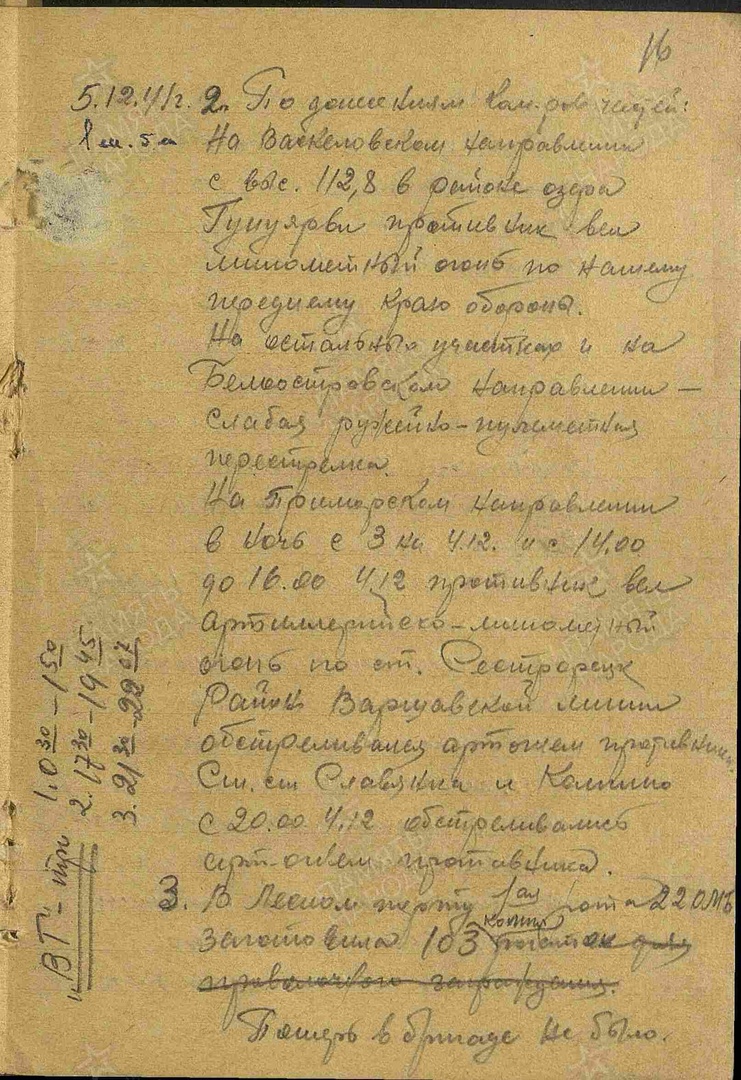 16
5.12.41г. 2. По донесениям ком-ров частей:
На Васкеловском направлении
с выс. 112,8 в районе озера
противник вел
минометный огонь по нашему
переднему краю обороны.
На остальных участках и на
Белоостровском направлении –
слабая ружейно-пулеметная
перестрелка.
На Приморском направлении
в ночь с 3 на 4.12. и с 14.00
до 16.00 4.12 противник вел
артиллерийско-минометный
огонь по ст. Сестрорецк
Район Варшавской линии
обстреливался артогнем противника.
Ст.ст Славянка и Колпино
с 20.00 4.12 обстреливались
арт-огнем противника.
В Лесном порту 1ая рота 22 ОМБ
кольев
заготовила 103 рогаток для
проволочного заграждения.
Потерь в бригаде не было.
"ВТ"- три
1. 0 30 – 1 50
2. 17 30 – 19 45
3. 21 30 – 22 07
ПАМЯТЬ НАРОДА